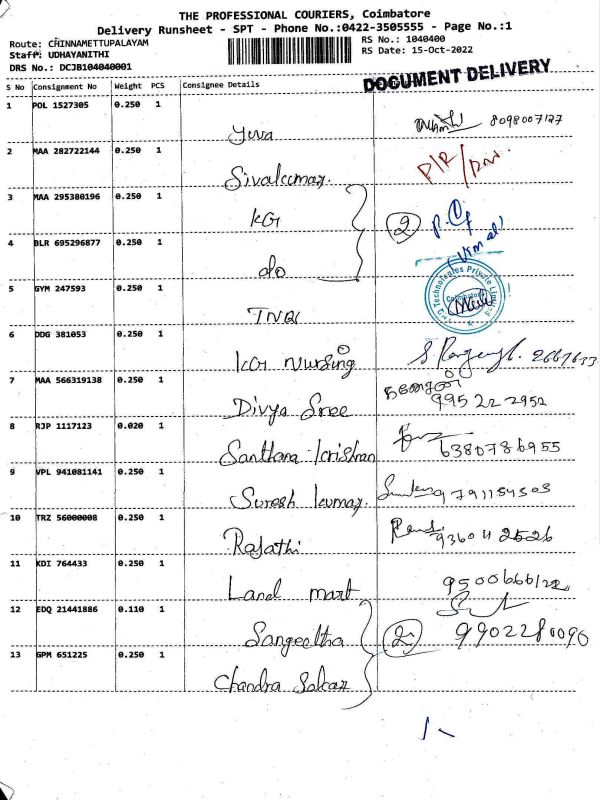 THE PROFESSIONAL COURIERS, Coimbatore
Delivery Runsheet - SPT - Phone No.:0422-3505555 - Page No.:1
Route: CHINNAMETTUPALAYAM
RS No.: 1040400
Staff: UDHAYANITHI
RS Date: 15-Oct-2022
DRS No.: DCJB104040001
DOCUMENT DELIVERY
S No Consignment No Weight PCS Consignee Details
1 POL 1527305 0.250 1 Yuva 8098007127
2 MAA 282722144 0.250 1 Sivakumar. P/R
3 MAA 295380196 0.250 1 KG 2
4 BLR 695296877 0.250 1 do
5 GYM 247593 0.250 1 TNQ
6 DDG 381053 0.250 1 KG Nursing
7 MAA 566319138 0.250 1 Divya Sree 995 22 2952
8 RJP 1117123 0.020 1 Santhana krishnan 6380786955
9 VPL 941081141 0.250 1 Suresh kumar. 9791154303
10 TRZ 56000008 0.250 1 Rajathi
11 KDI 764433 0.250 1 Land mart
12 EDQ 21441886 0.110 1 Sangeetha 2 9902280096
13 GPM 651225 0.250 1 Chandra Sekar